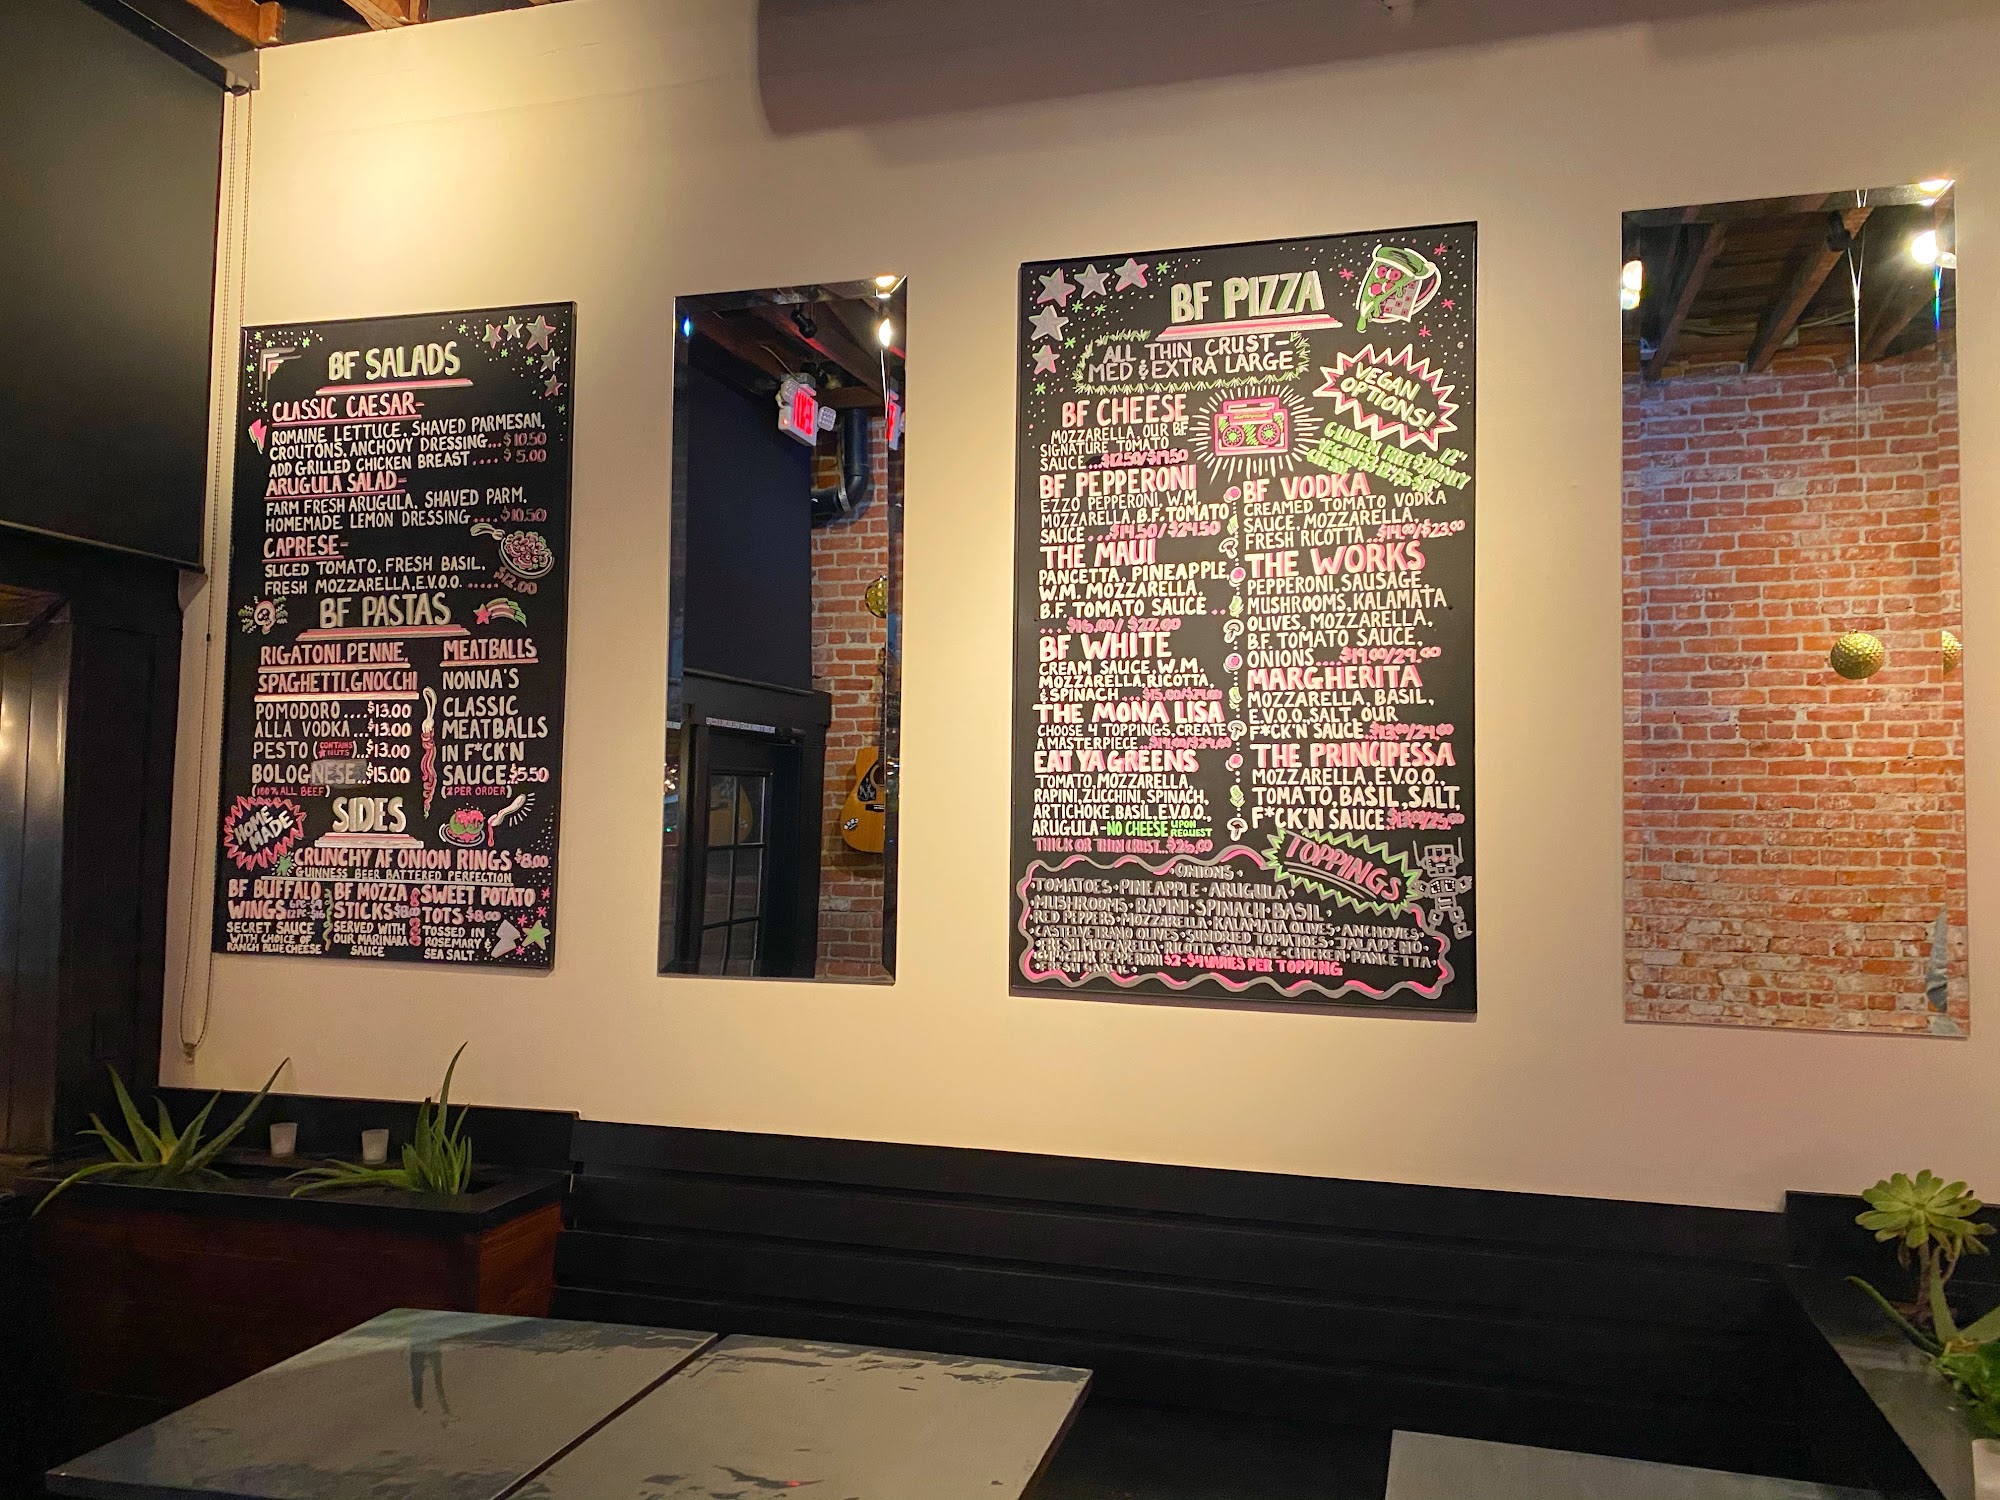 BF SALADS
CLASSIC CAESAR-
ROMAINE LETTUCE, SHAVED PARMESAN,
CROUTONS, ANCHOVY DRESSING...$10.50
ADD GRILLED CHICKEN BREAST....$5.00
ARUGULA SALAD-
FARM FRESH ARUGULA, SHAVED PARM,
HOMEMADE LEMON DRESSING....$10.50
CAPRESE-
SLICED TOMATO, FRESH BASIL,
FRESH MOZZARELLA, E.V.O.O. .....$12.00
BF PASTAS
RIGATONI, PENNE,
SPAGHETTI, GNOCCHI
POMODORO....$13.00
ALLA VODKA...$13.00
PESTO (CONTAINS NUTS)..$13.00
BOLOGNESE...$15.00
(100% ALL BEEF)
MEATBALLS
NONNA'S
CLASSIC
MEATBALLS
IN F*CK'N
SAUCE.$5.50
(2 PER ORDER)
HOME
MADE
SIDES
CRUNCHY AF ONION RINGS $8.00
GUINNESS BEER BATTERED PERFECTION
BF BUFFALO
WINGS 6PC-$9
12PC-$16
SECRET SAUCE
WITH CHOICE OF
RANCH BLUE CHEESE
BF MOZZA
STICKS $8.00
SERVED WITH
OUR MARINARA
SAUCE
SWEET POTATO
TOTS $8.00
TOSSED IN
ROSEMARY &
SEA SALT
BF PIZZA
ALL THIN CRUST-
MED & EXTRA LARGE
VEGAN
OPTIONS!
GLUTEN FREE
12"
ONLY
BF CHEESE
MOZZARELLA, OUR BF
SIGNATURE TOMATO
SAUCE...$12.50/$19.50
BF PEPPERONI
EZZO PEPPERONI, W.M.
MOZZARELLA, B.F. TOMATO
SAUCE...$14.50/$24.50
THE MAUI
PANCETTA, PINEAPPLE,
W.M. MOZZARELLA,
B.F. TOMATO SAUCE ..
... $16.00/$27.00
BF WHITE
CREAM SAUCE, W.M.
MOZZARELLA, RICOTTA,
& SPINACH...$15.00/$24.00
THE MONA LISA
CHOOSE 4 TOPPINGS, CREATE
A MASTERPIECE...$19.00/$29.00
EAT YA GREENS
TOMATO, MOZZARELLA,
RAPINI, ZUCCHINI, SPINACH,
ARTICHOKE, BASIL, E.V.O.O.,
ARUGULA-NO CHEESE UPON REQUEST
THICK OR THIN CRUST...$26.00
BF VODKA
CREAMED TOMATO VODKA
SAUCE, MOZZARELLA,
FRESH RICOTTA..$14.00/$23.00
THE WORKS
PEPPERONI, SAUSAGE,
MUSHROOMS, KALAMATA
OLIVES, MOZZARELLA,
B.F. TOMATO SAUCE,
ONIONS....$19.00/29.00
MARGHERITA
MOZZARELLA, BASIL,
E.V.O.O. SALT, OUR
F*CK'N SAUCE.$13.00/24.00
THE PRINCIPESSA
MOZZARELLA, E.V.O.O.,
TOMATO, BASIL, SALT,
F*CK'N SAUCE.$13.00/25.00
TOPPINGS
•ONIONS•
•TOMATOES•PINEAPPLE•ARUGULA•
•MUSHROOMS•RAPINI•SPINACH•BASIL•
RED PEPPERS•MOZZARELLA•KALAMATA OLIVES•ANCHOVIES•
•CASTELVETRANO OLIVES•SUNDRIED TOMATOES•JALAPENO•
•FRESH MOZZARELLA•RICOTTA•SAUSAGE•CHICKEN•PANCETTA•
CHAR PEPPERONI $2-$4 VARIES PER TOPPING
•FRESH GARLIC•